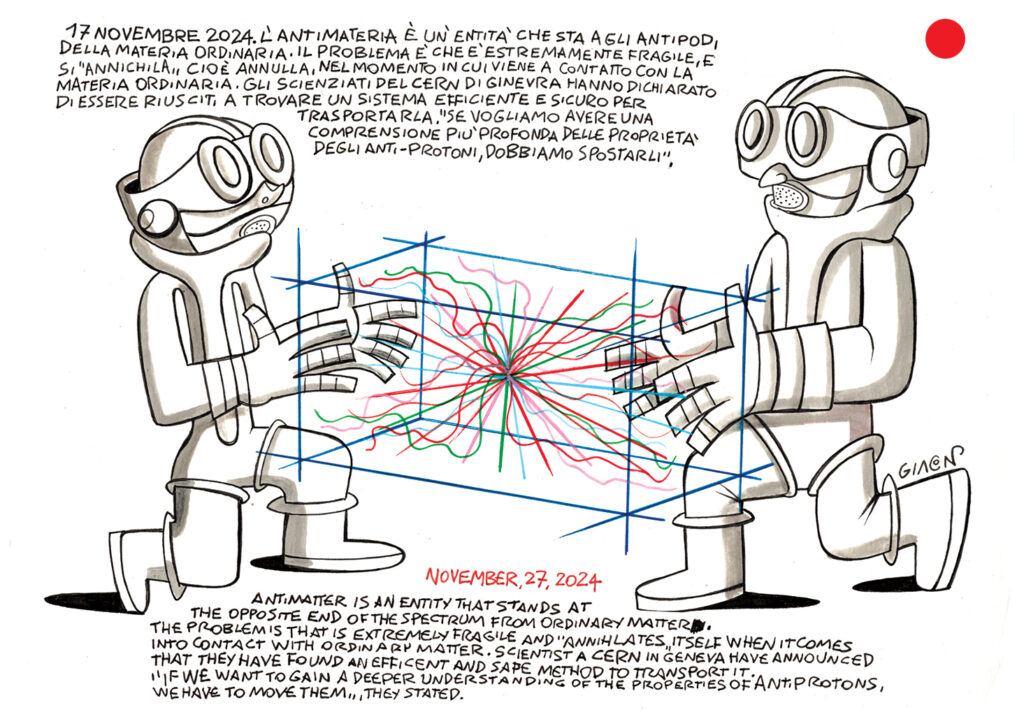 17 NOVEMBRE 2024. L'ANTIMATERIA È UN'ENTITÀ CHE STA AGLI ANTIPODI
DELLA MATERIA ORDINARIA. IL PROBLEMA È CHE E'ESTREMAMENTE FRAGILE, E
SI "ANNICHILA,, CIOÈ ANNULLA, NEL MOMENTO IN CUI VIENE A CONTATTO CON LA
MATERIA ORDINARIA. GLI SCIENZIATI DEL CERN DI GINEVRA HANNO DICHIARATO
DI ESSERE RIUSCITI A TROVARE UN SISTEMA EFFICIENTE E SICURO PER
TRASPORTARLA, "SE VOGLIAMO AVERE UNA
COMPRENSIONE PIU' PROFONDA DELLE PROPRIETA'
DEGLI ANTI-PROTONI, DOBBIAMO SPOSTARLI",
GIACON
NOVEMBER, 27, 2024
ANTIMATTER IS AN ENTITY THAT STANDS AT
THE OPPOSITE END OF THE SPECTRUM FROM ORDINARY MATTER.
THE PROBLEM IS THAT IS EXTREMELY FRAGILE AND "ANNIHLATES,, ITSELF WHEN IT COMES
INTO CONTACT WITH ORDINARY MATTER. SCIENTIST A CERN IN GENEVA HAVE ANNOUNCED
THAT THEY HAVE FOUND AN EFFICENT AND SAFE METHOD TO TRANSPORT IT.
"IF WE WANT TO GAIN A DEEPER UNDERSTANDING OF THE PROPERTIES OF ANTIPROTONS,
WE HAVE TO MOVE THEM,,, THEY STATED.